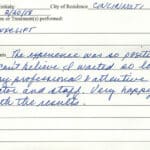 Initials: City of Residence CINCINNATI
or Treatment(s) performed:
The experience was so posit
can't believe I waited so lo
ry professional & attentive
tor and staff. Very happy
th the results.